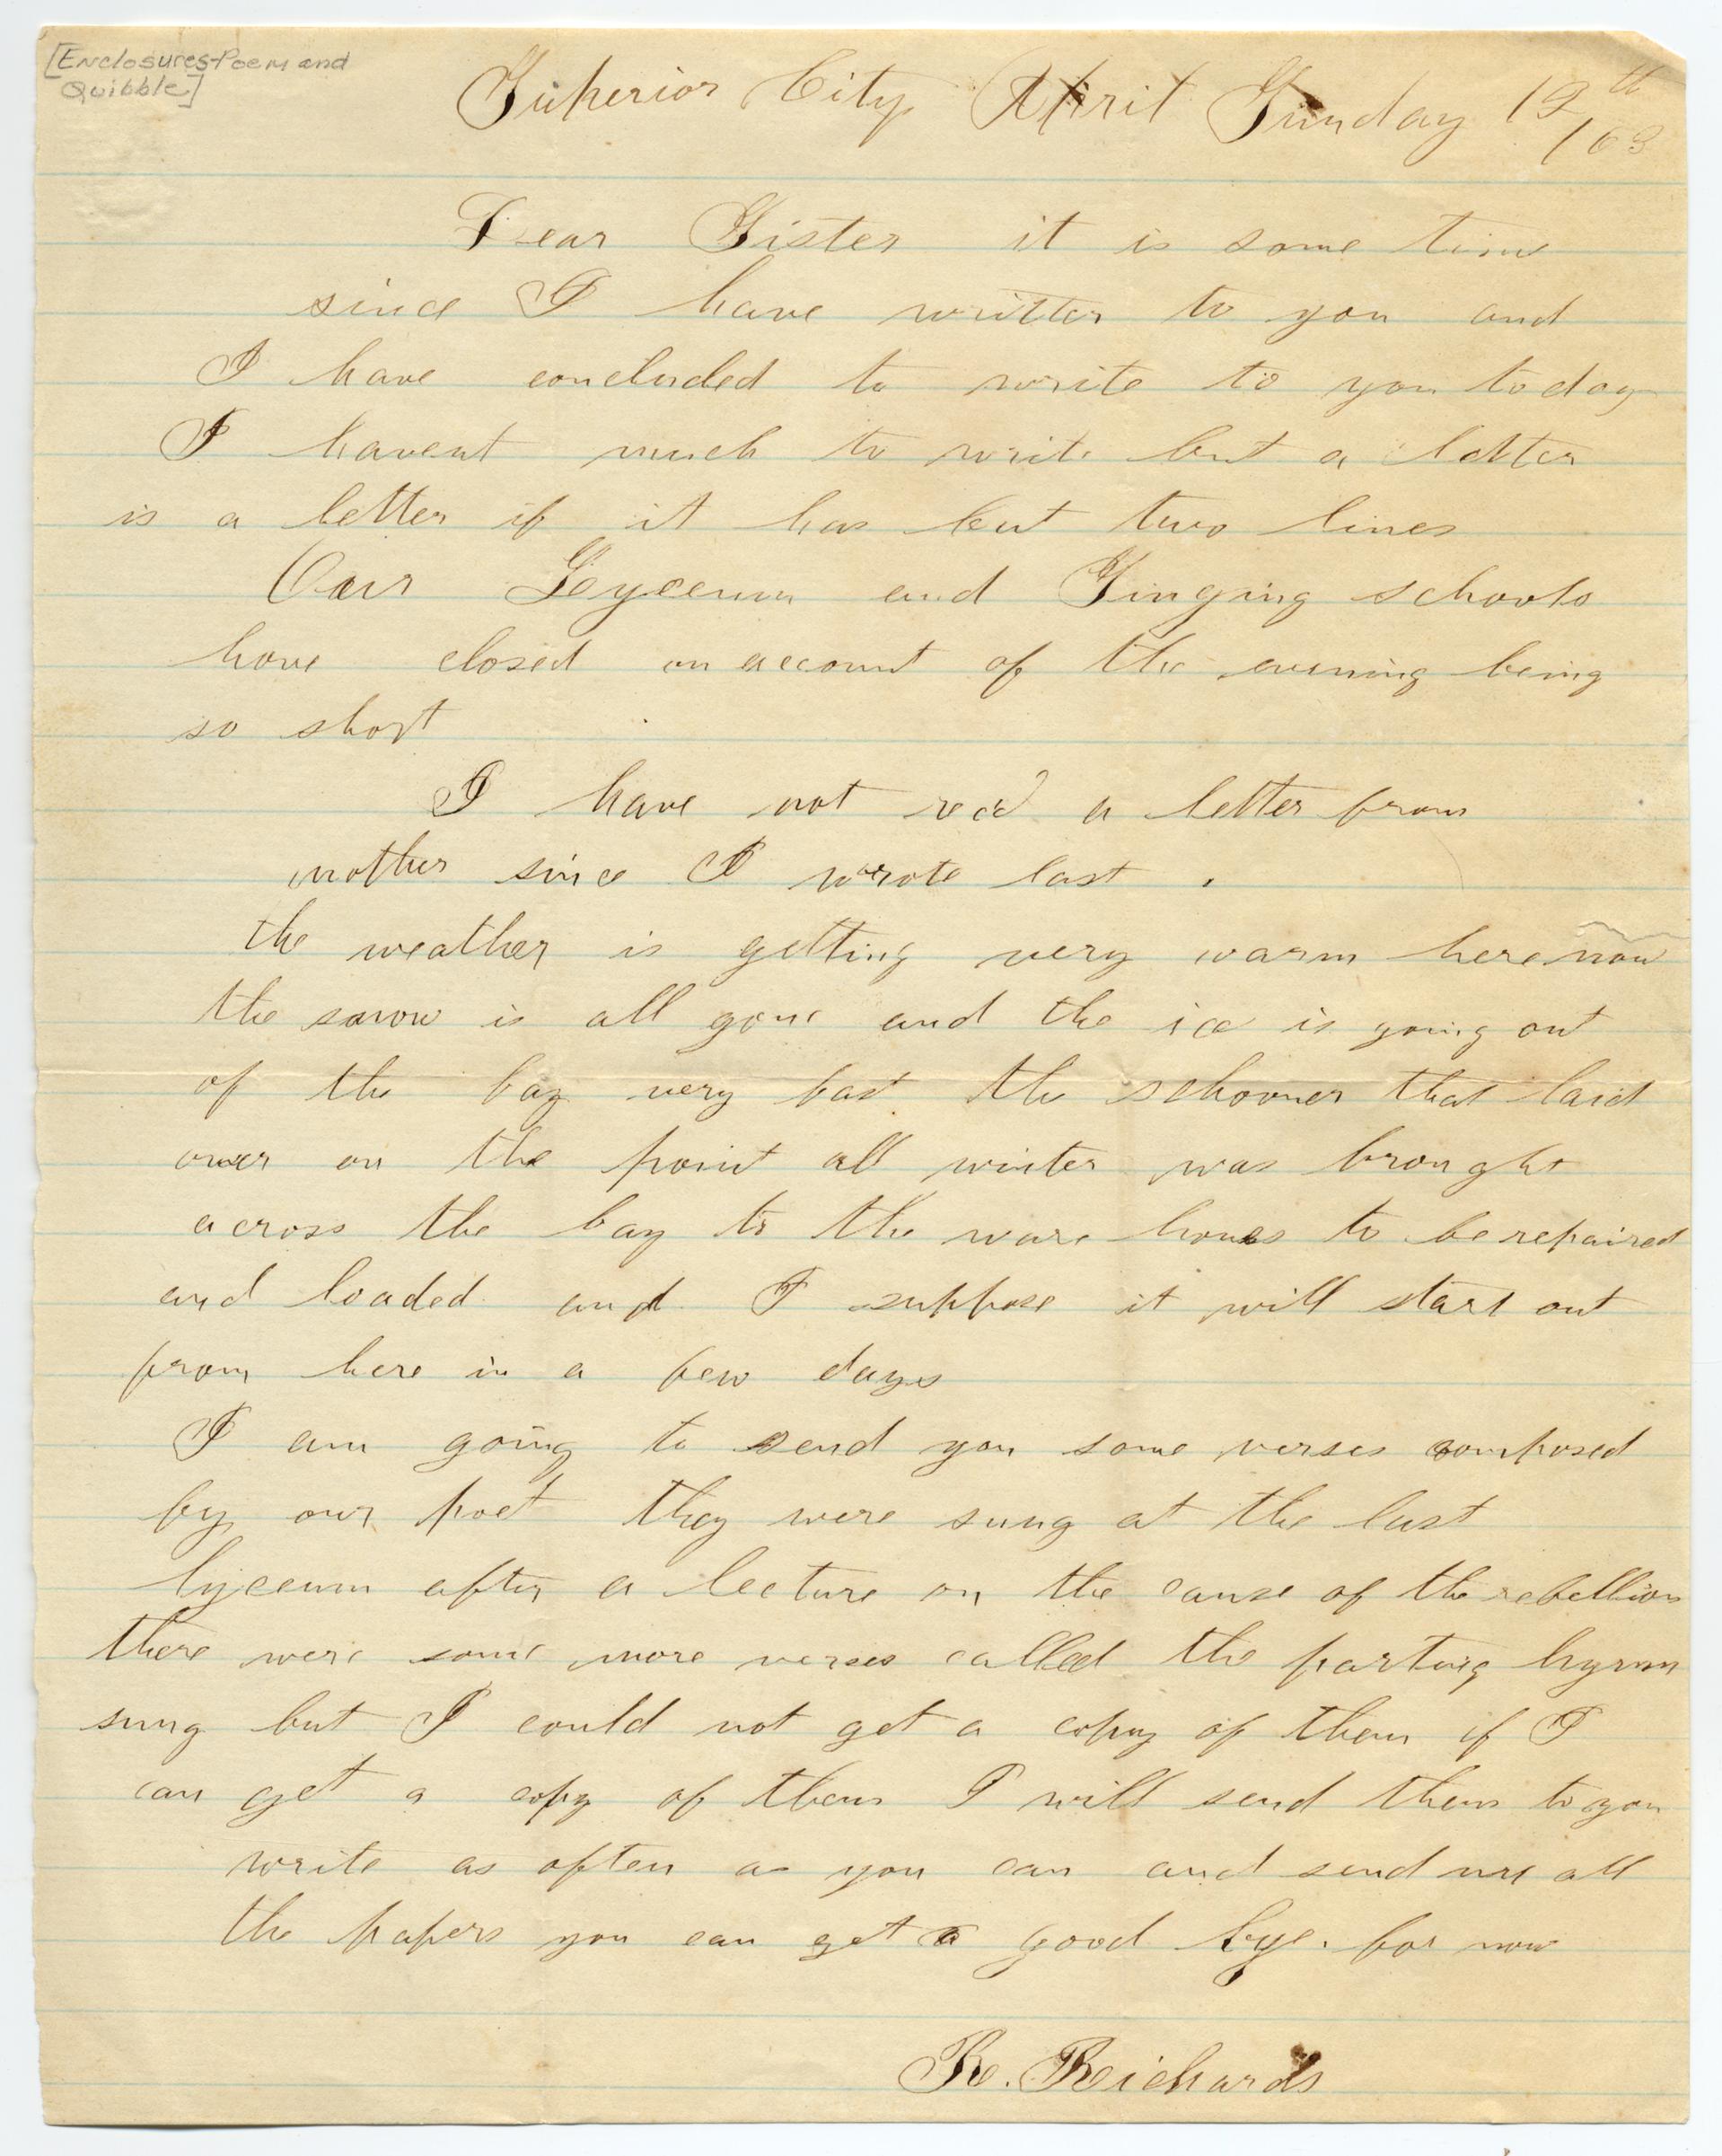 [Enclosures-Poem and
Quibble]
Superior City April Sunday 12th
/63
Dear Sister it is some time
since I have written to you and
I have concluded to write to you to day
I havent much to write but a letter
is a letter if it has but two lines
Our Leyceum and Singing schools
have closed on account of the evening being
so short
I have not recd a letter from
mother since I wrote last .
the weather is getting very warm here now
the snow is all gone and the ice is going out
of the bay very fast the schooner that laid
over on the point all winter was brought
across the bay to the ware houes to be repaired
and loaded and I suppose it will start out
from here in a few days
I am going to send you some verses composed
by our poet they were sung at the last
lyceum after a lecture on the cause of the rebellion
there were some more verses called the parting hymn
sung but I could not get a copy of them if I
can get a copy of them I will send them to you
write as often as you can and send me all
the papers you can get good bye. for now
R. Reichards